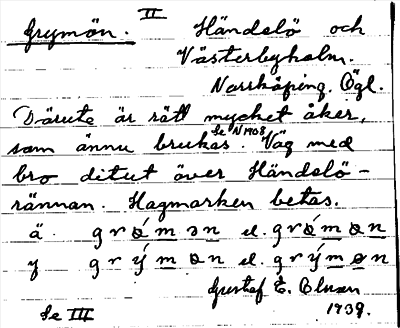 Grymön. II Händelö och
Västerbyholm.
Norrköping. Ögl.
Därute är rätt mycket åker,
Se N 1908
som ännu brukas. Väg med
bro ditut över Händelö-
rännan. Hagmarken betas.
ä. grǿmən el. grǿmən
y grýmən el. grýmən
Gustaf E. Olsson
Se III 1939.